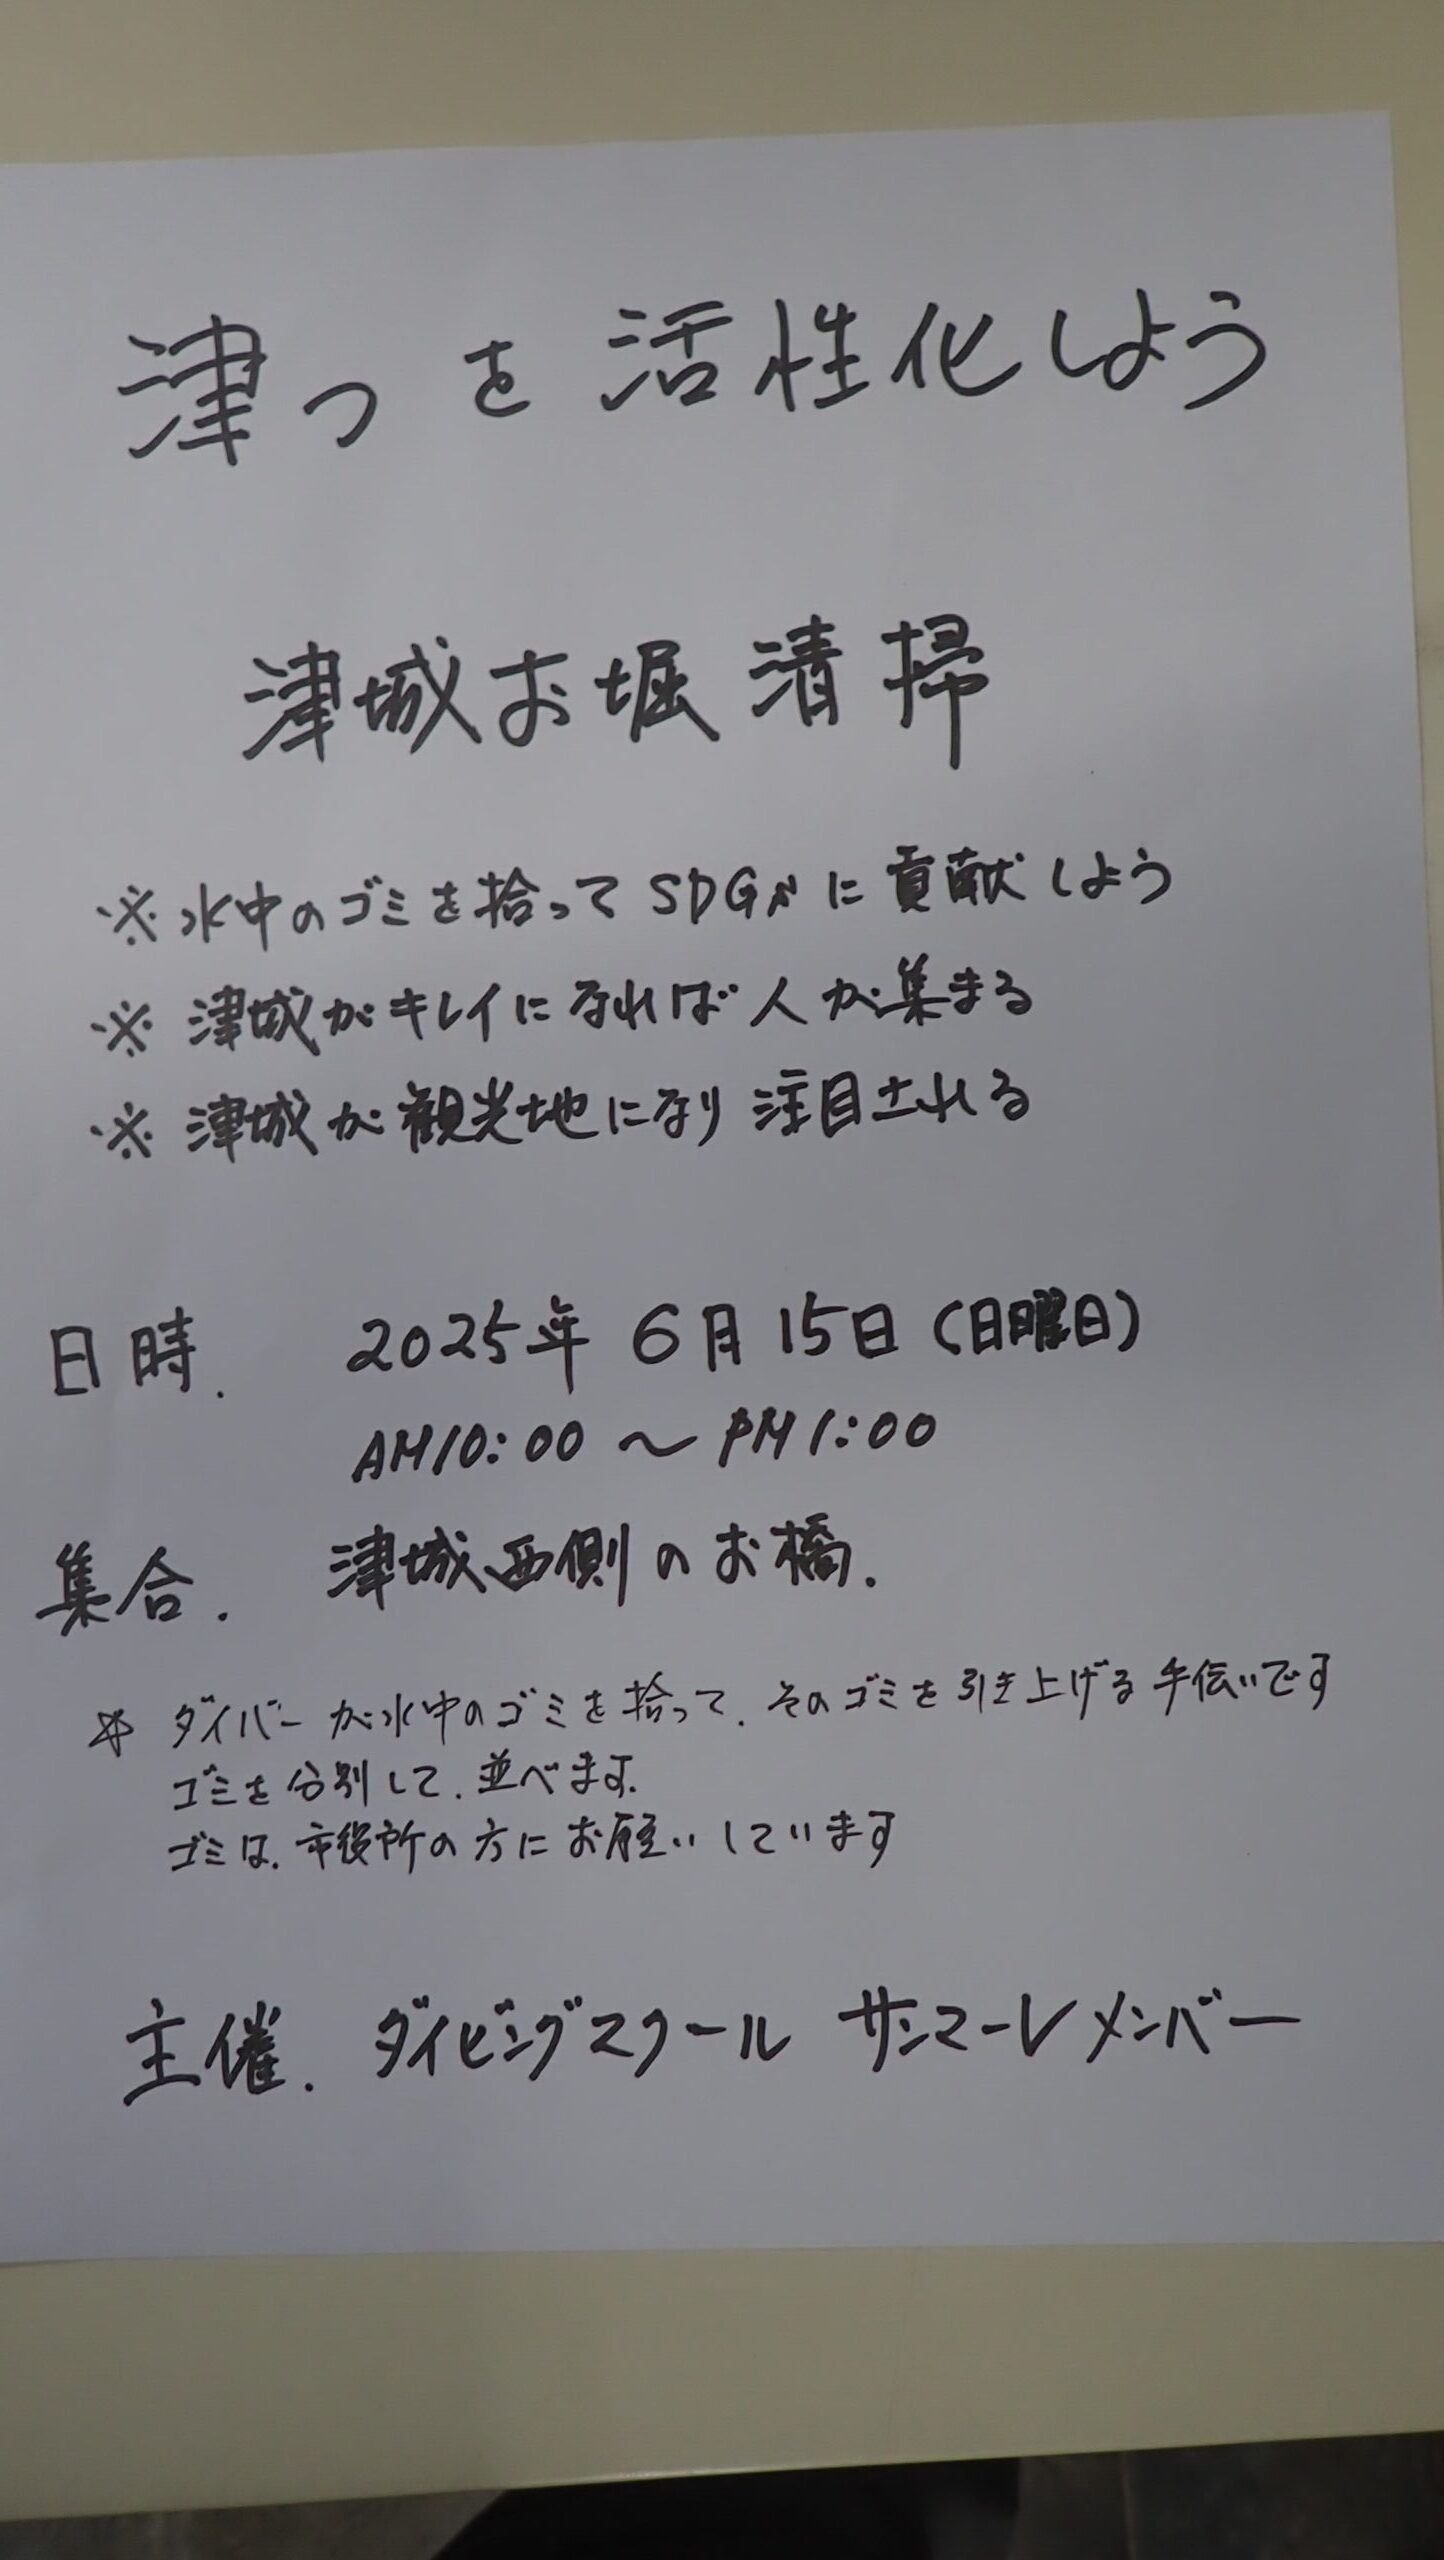 津っを活性化しよう
津城お堀清掃
※水中のゴミを拾ってSDGsに貢献しよう
※津城がキレイになれば人が集まる
※津城が観光地になり注目される
日時. 2025年6月15日(日曜日)
AM10:00〜PM1:00
集合. 津城西側のお橋.
☆ダイバーが水中のゴミを拾って、そのゴミを引き上げる手伝いです
ゴミを分別して、並べます。
ゴミは、市役所の方にお願いしています
主催. ダイビングスクール サンマーレメンバー